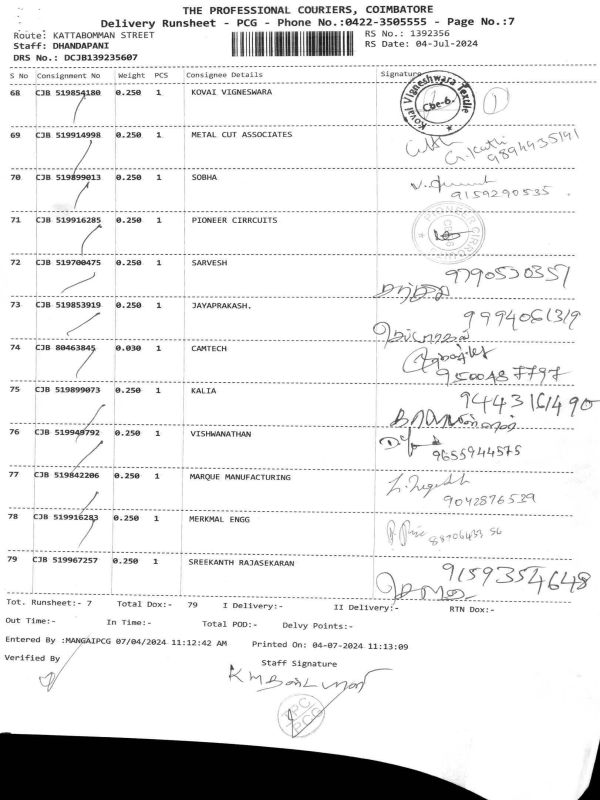 THE PROFESSIONAL COURIERS, COIMBATORE
Delivery Runsheet - PCG - Phone No.:0422-3505555 - Page No.:7
Route: KATTABOMMAN STREET RS No.: 1392356
Staff: DHANDAPANI RS Date: 04-Jul-2024
DRS No.: DCJB139235607
S No Consignment No Weight PCS Consignee Details Signature
68 CJB 519854180 0.250 1 KOVAI VIGNESWARA Kovai Vigneshwara Textile Cbe-6. 1
69 CJB 519914998 0.250 1 METAL CUT ASSOCIATES
9894435141
70 CJB 519899013 0.250 1 SOBHA
9159290535
71 CJB 519916285 0.250 1 PIONEER CIRRCUITS PIONEER CIRCUITS
72 CJB 519700475 0.250 1 SARVESH 9790530357
73 CJB 519853919 0.250 1 JAYAPRAKASH. 9994061319
74 CJB 80463845 0.030 1 CAMTECH
9500487797
75 CJB 519899073 0.250 1 KALIA 9443161490
76 CJB 519949792 0.250 1 VISHWANATHAN
9655944575
77 CJB 519842206 0.250 1 MARQUE MANUFACTURING
9042876539
78 CJB 519916283 0.250 1 MERKMAL ENGG
79 CJB 519967257 0.250 1 SREEKANTH RAJASEKARAN 9159354648
Tot. Runsheet:- 7 Total Dox:- 79 I Delivery:- II Delivery:- RTN Dox:-
Out Time:- In Time:- Total POD:- Delvy Points:-
Entered By :MANGAIPCG 07/04/2024 11:12:42 AM Printed On: 04-07-2024 11:13:09
Verified By Staff Signature
TPC
PCG